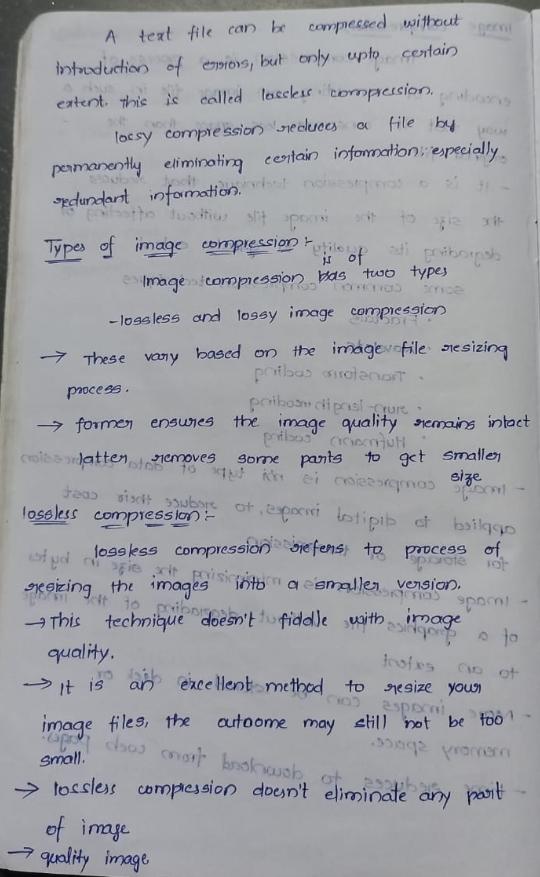 A text file can be compressed without
introduction of errors, but only upto certain
extent. this is called lossless compression.
lossy compression reduces a file by
permanently eliminating certain information; especially
redundant information.
Types of image compression :-
is of
Image compression has two types
-lossless and lossy image compression
→ These vary based on the image file resizing
process.
→ former ensures the image quality remains intact
latter removes some parts to get smaller
size
lossless compression:-
lossless compression refers to process of
resizing the images into a smaller version.
→ This technique doesn't fiddle with image
quality.
→ It is an excellent method to resize your
image files, the outcome may still not be too
small.
→ lossless compression doesn't eliminate any part
of image
→ quality image